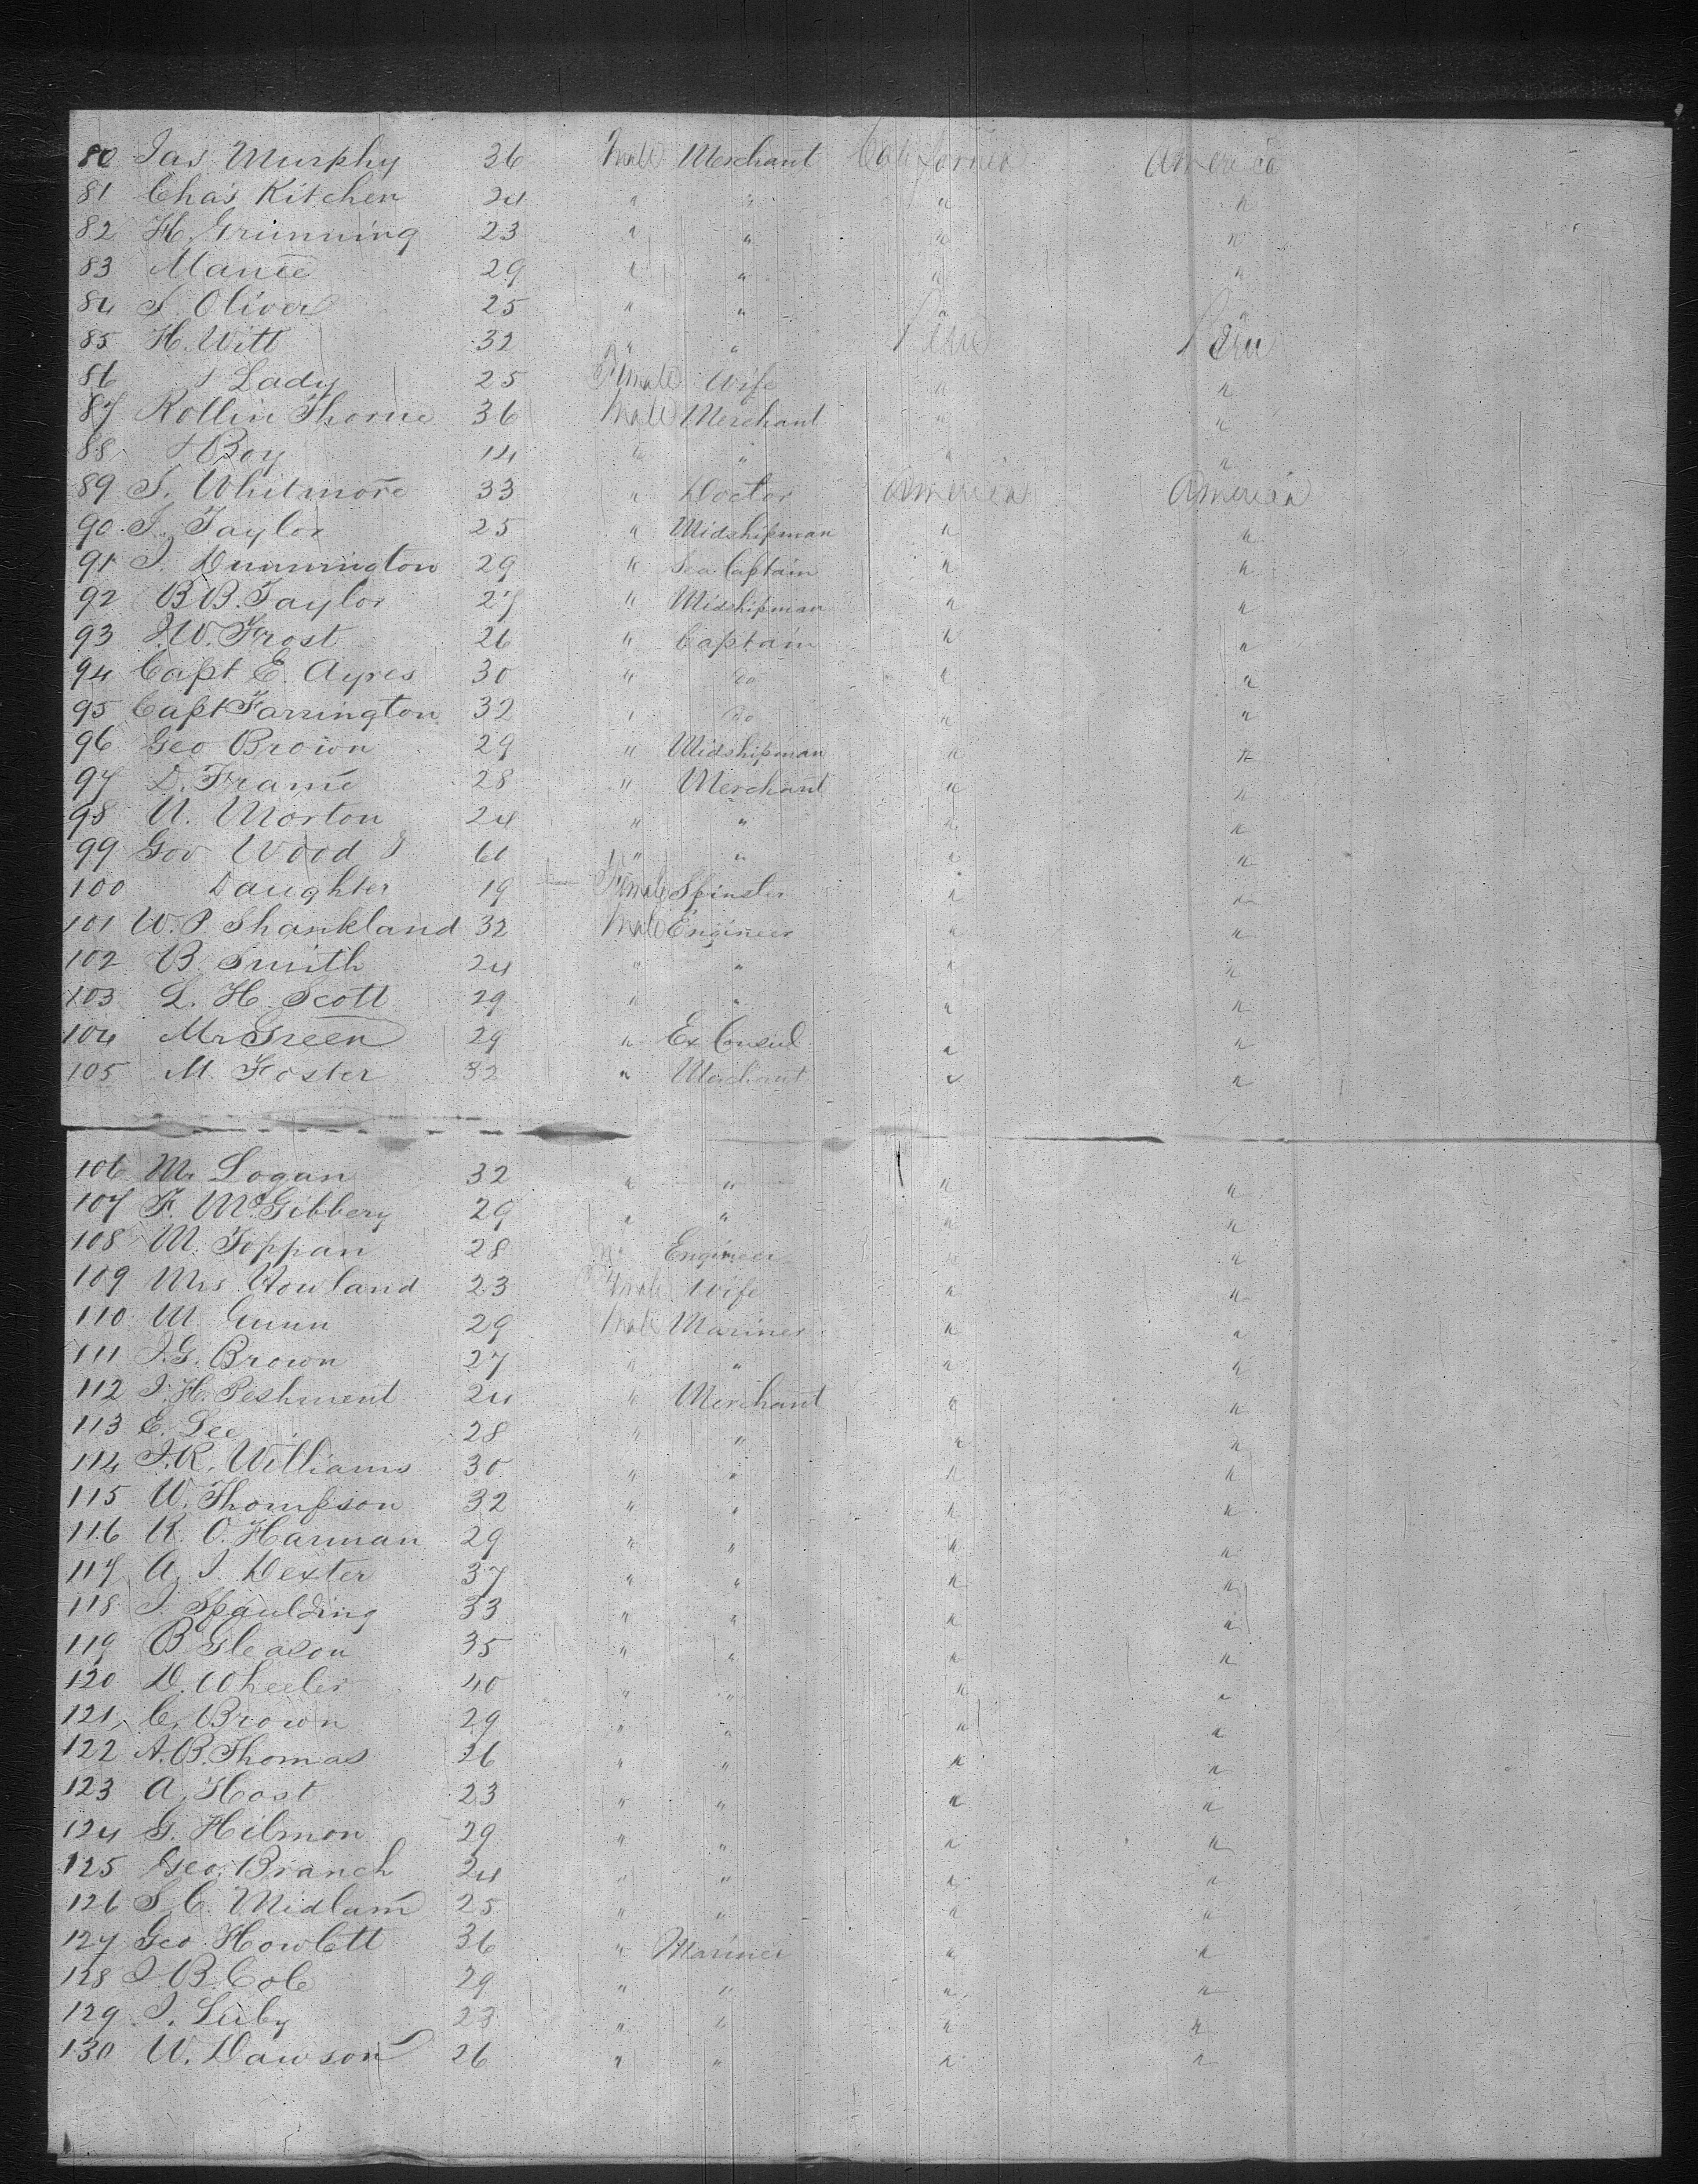 80 Jas Murphy 36 Male Merchant California America
81 Chas Kitchen 24 " " " "
82 H. Grunning 23 " " " "
83 Manee 29 " " " "
84 S. Oliver 25 " " " "
85 H. Witt 32 " " Peru Peru
86 & Lady 25 Female Wife " "
87 Rollin Thorne 36 Male Merchant " "
88 & Boy 14 " " " "
89 S. Whitmore 33 " Doctor America America
90 J. Taylor 25 " Midshipman " "
91 J. Dunnington 29 " Sea Captain " "
92 B B. Taylor 27 " Midshipman " "
93 J. W. Frost 26 " Captain " "
94 Capt E. Ayres 30 " do " "
95 Capt Farrington 32 " do " "
96 Geo Brown 29 " Midshipman " "
97 D. Frame 28 " Merchant " "
98 N. Morton 24 " " " "
99 Gov Wood & 60 " " " "
100 Daughter 19 Female Spinster " "
101 W. P Shankland 32 Male Engineer " "
102 B. Smith 24 " " " "
103 L. H. Scott 29 " " " "
104 Mr Green 29 " Ex Consul " "
105 M. Foster 32 " Merchant " "
106 Mr Logan 32 " " " "
107 F. McGibbery 29 " " " "
108 M. Toppan 28 " Engineer " "
109 Mrs Howland 23 Female Wife " "
110 M. Gunn 29 Male Mariner " "
111 J. G. Brown 27 " " " "
112 J. H. Peshment 24 " Merchant " "
113 E. Lee 28 " " " "
114 J. R. Williams 30 " " " "
115 W. Thompson 32 " " " "
116 R. O. Harman 29 " " " "
117 A. J. Dexter 37 " " " "
118 J. Spaulding 33 " " " "
119 B Gleason 35 " " " "
120 D. Wheeler 40 " " " "
121 C. Brown 29 " " " "
122 A. B. Thomas 26 " " " "
123 A. Host 23 " " " "
124 G. Hilmon 29 " " " "
125 Geo. Branch 24 " " " "
126 S. C. Midlam 25 " " " "
127 Geo Howlett 36 " Mariner " "
128 J B. Cole 29 " " " "
129 J. Luby 23 " " " "
130 W. Dawson 26 " " " "